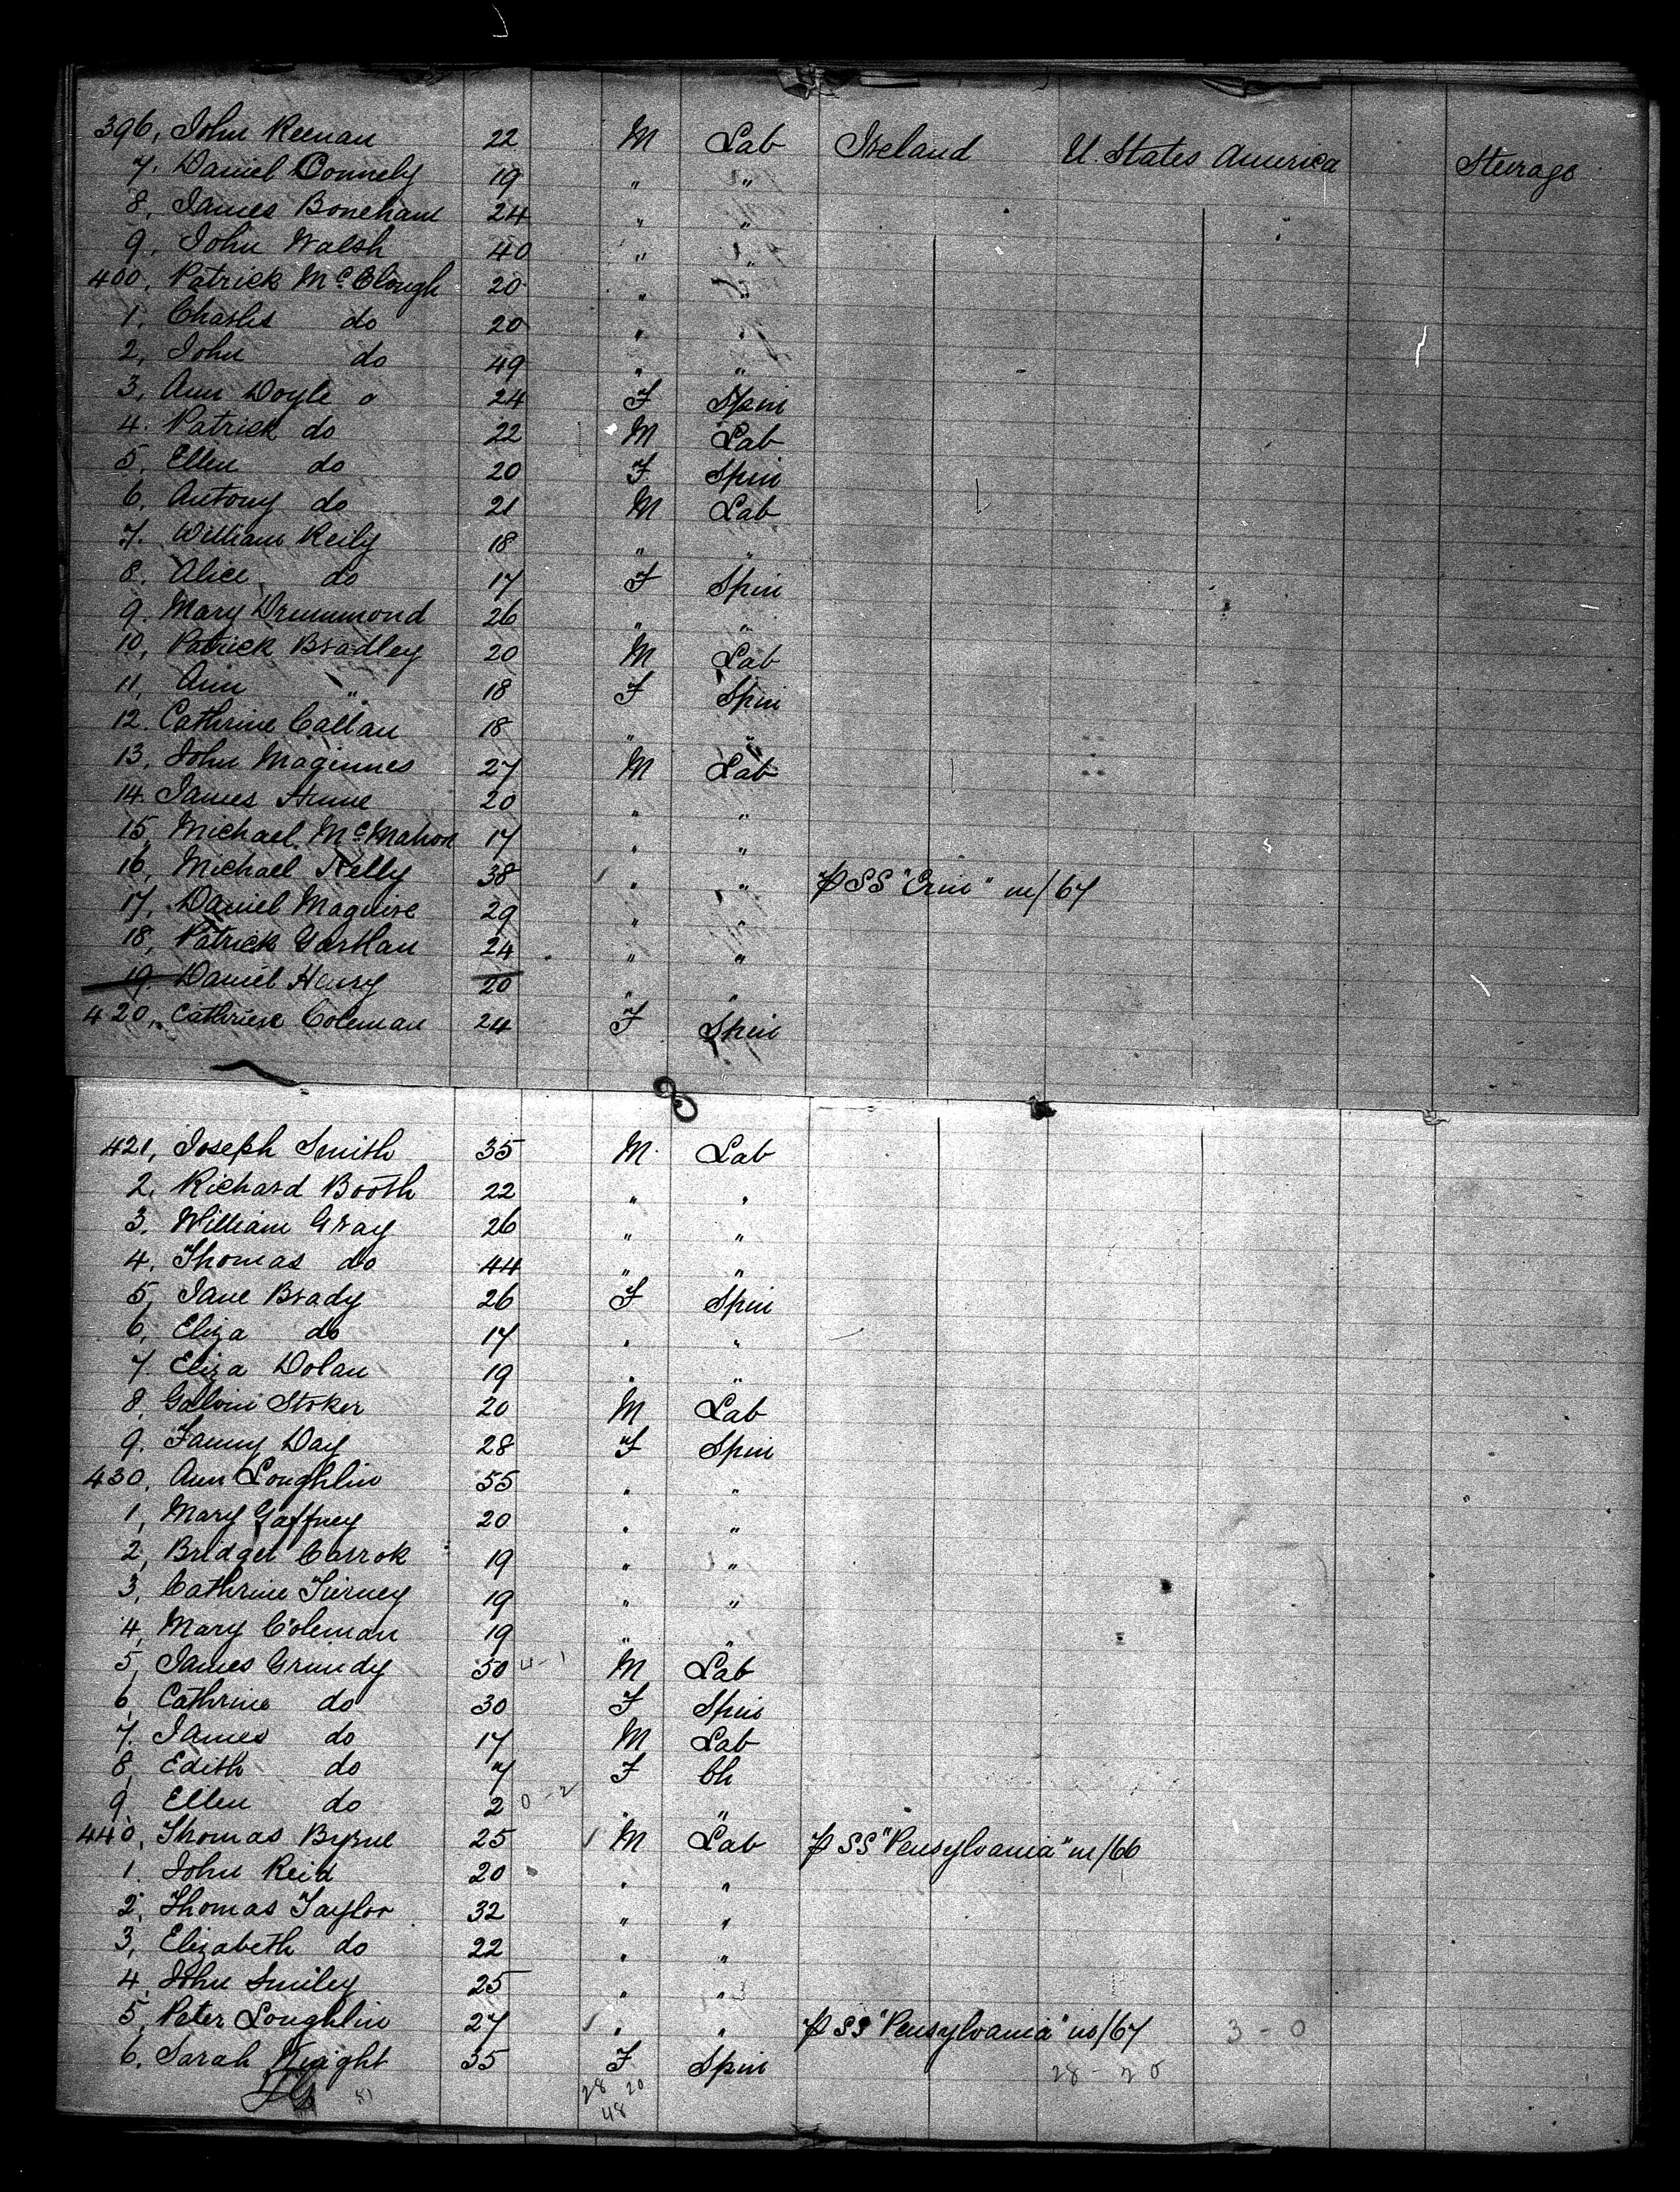 396, John Keenan 22 M Lab Ireland U. States America Steirage
7. Daniel Connely 19 " "
8, James Boneham 24 " "
9, John Walsh 40 " "
400, Patrick McClough 20 " "
1, Charles do 20 " "
2, John do 49 " "
3, Ann Doyle 24 F Spin
4. Patrick do 22 M Lab
5, Ellen do 20 F Spin
6, Antony do 21 M Lab
7. William Reily 18 " "
8. Alice do 17 F Spin
9. Mary Drummond 26 " "
10, Patrick Bradley 20 M Lab
11, Ann " 18 F Spin
12. Cathrine Callan 18 " "
13, John Maginnes 27 M Lab
14. James 20 " "
15, Michael McMahon 17 " "
16, Michael Kelly 38 " " p SS "Erin" m/67
17, Daniel Maguire 29 " "
18, Patrick Gartlan 24 " "
19 Daniel Henry 20 " "
420, Cathrine Coleman 24 F Spin
421, Joseph Smith 35 M Lab
2. Richard Booth 22 " "
3. William Gray 26 " "
4, Thomas do 44 " "
5, Jane Brady 26 F Spin
6, Eliza do 17 " "
7. Eliza Dolan 19 " "
8, Stoker 20 M Lab
9. Fanny Day 28 F Spin
430, Ann Loughlin 55 " "
1, Mary Gaffney 20 " "
2, Bridget Carrok 19 " "
3, Cathrine Tierney 19 " "
4, Mary Coleman 19 " "
5, James Grundy 50 M Lab
6, Cathrine do 30 F Spin
7. James do 17 M Lab
8, Edith do 7 F Ch
9, Ellen do 2 0-2 " "
440, Thomas Byrne 25 M Lab p SS "Pensylvania" m/66
1. John Reid 20 " "
2, Thomas Taylor 32 " "
3, Elizabeth do 22 " "
4, John Smiley 25 " "
5, Peter Loughlin 27 " " p SS "Pensylvania" m/67 3-0
6, Sarah Knight 35 F Spin 28-20
28 20
48